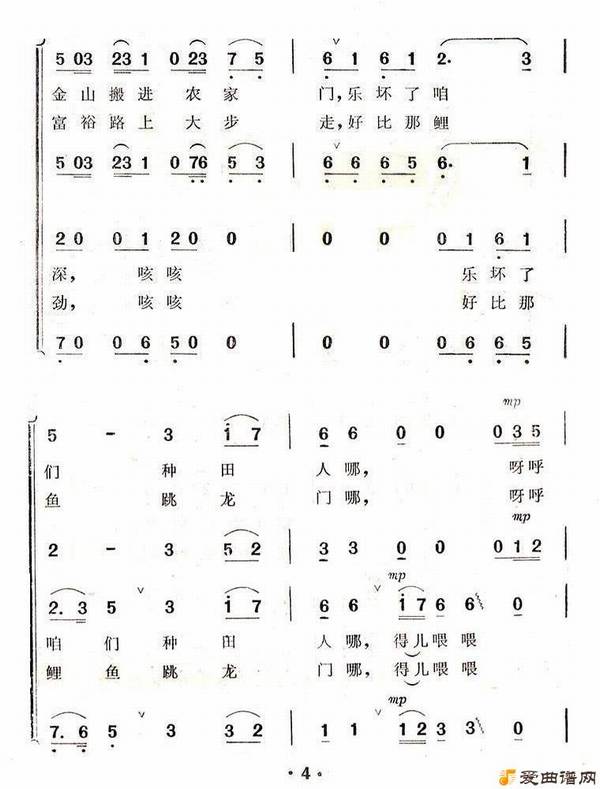 5 03 23 1 0 23 7 5 | 6 1 6 1 2. 3 |
金山搬进 农家 门,乐坏了咱
富裕路上 大步 走,好比那鲤
5 03 23 1 0 76 5 3 | 6 6 6 5 6. 1 |
2 0 0 1 2 0 0 | 0 0 0 1 6 1 |
深, 咳咳 乐坏了
劲, 咳咳 好比那
7 0 0 6 5 0 0 | 0 0 0 6 6 5 |
mp
5 - 3 i 7 | 6 6 0 0 0 3 5 |
们 种田 人哪, 呀呼
鱼 跳龙 门哪, 呀呼
mp
2 - 3 5 2 | 3 3 0 0 0 1 2 |
mp
2. 3 5 3 i 7 | 6 6 i 7 6 6 0 |
咱 们 种田 人哪, 得儿喂喂
鲤 鱼 跳龙 门哪, 得儿喂喂
mp
7. 6 5 3 3 2 | 1 1 1 2 3 3 0 |
· 4 ·
爱曲谱网